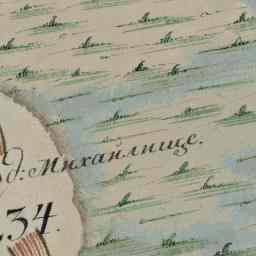 д: Михайлище.
234.